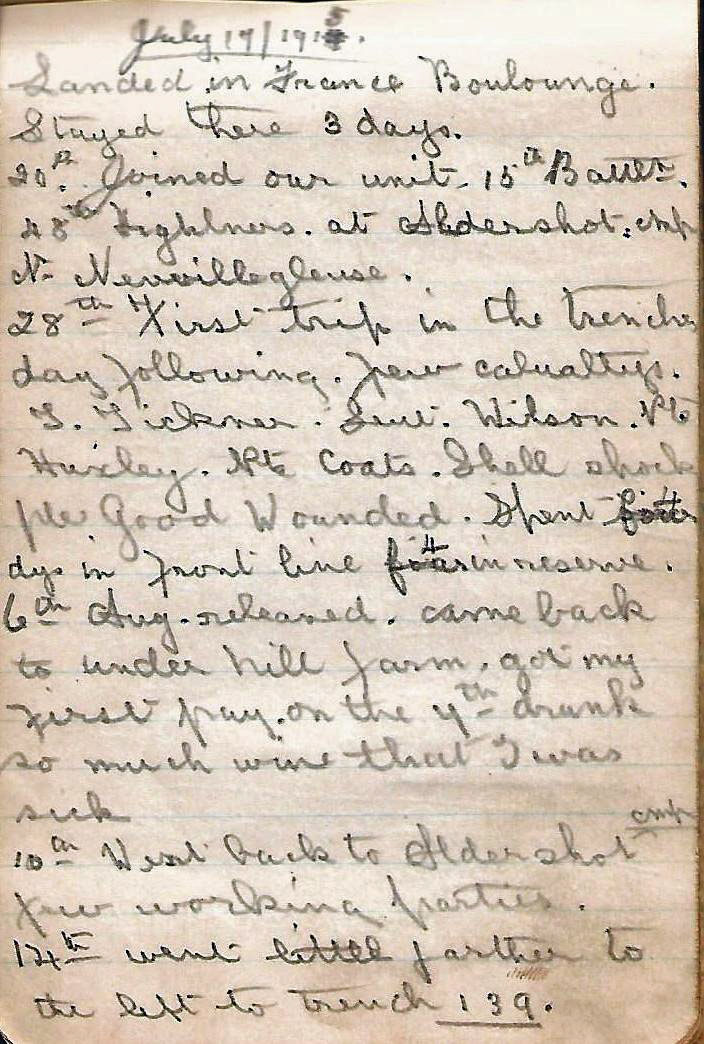 July 17/1915.
Landed in France Boulounge.
Stayed there 3 days.
20th. Joined our unit. 15th Battn.
48th Highlners. at Aldershot. cmp
Nr Neuvillegleuse.
28th First trip in the trenches
day following. few calualtys.
T. Tickner. Lieut. Wilson. Pte
Huxley. Pte Coats. Shell shock
pte Good Wounded. Spent 4
dys in front line 4 in reserve.
6th Aug. released. came back
to under hill farm. got my
first pay. on the 7th drank
so much wine that I was
sick
10th Went back to Aldershot cmp
few working parties.
14th went little farther to
the left to trench 139.